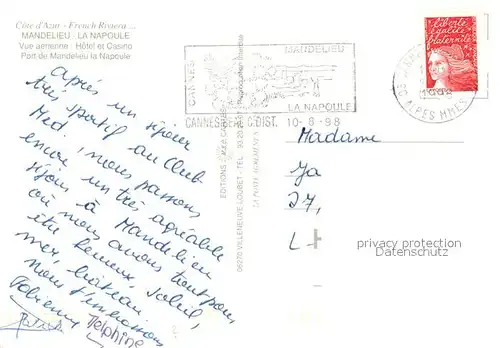 Côte d'Azur - French Riviera ...
MANDELIEU - LA NAPOULE
Vue aérienne : Hôtel et Casino
Port de Mandelieu la Napoule
Après un séjour
très sportif au Club
Med, nous passons
encore un très agréable
séjour à Mandelieu
où nous avons tout pour
être heureux, soleil,
mer, château.
Nous t'embrassons
Fabienne Delphine
CANNES
MANDELIEU
LA NAPOULE
CANNES C.DIST. 10-8-98
liberté
égalité
fraternité
1998
ALPES MMES
Madame
Ja
27,
L
privacy protection
Datenschutz
EDITIONS
06270 VILLENEUVE LOUBET - TEL. 93 20
Reproduction interdite